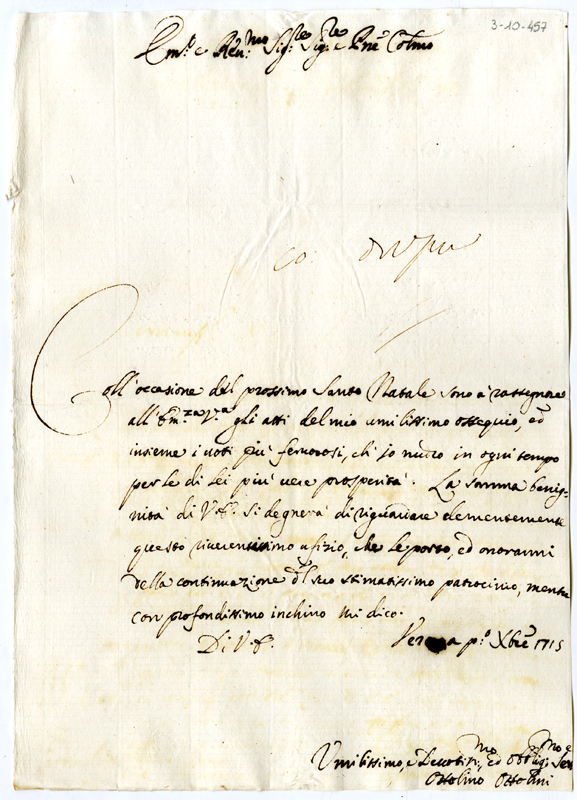 3-10-457
Em.º e Rev.mo Sig.re Sig.re e Pñe Colmo
Coll'occasione del prossimo Santo Natale sono à rassegnare
all'Em.za V.ra gli atti del mio umilissimo ossequio, ed
insieme i voti più fervorosi, ch'io nutro in ogni tempo
per le di Lei più vere prosperità. La somma benig-
nità di V. E. si degnerà di riguardare clementemente
questo riverentissimo ufizio, che le porto, ed onorarmi
della continuazione del suo stimatissimo patrocinio, mentre
con profondissimo inchino mi dico.
Di V. E. Verona p.º Xbre 1715
Umilissimo, e Devotis.mo, ed Obblig.mo Ser.e
Ottolino Ottolini